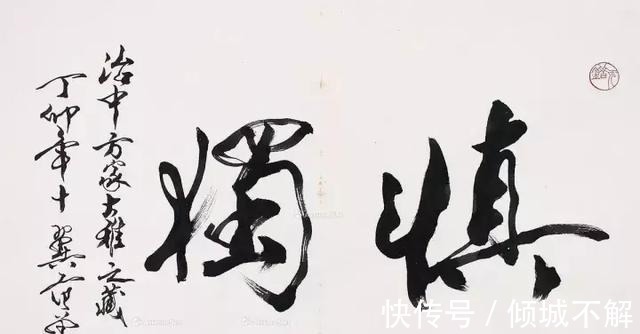 慎獨
治中方家大雅之藏
丁卯年十翼范曾
快传号 / 倾城不解